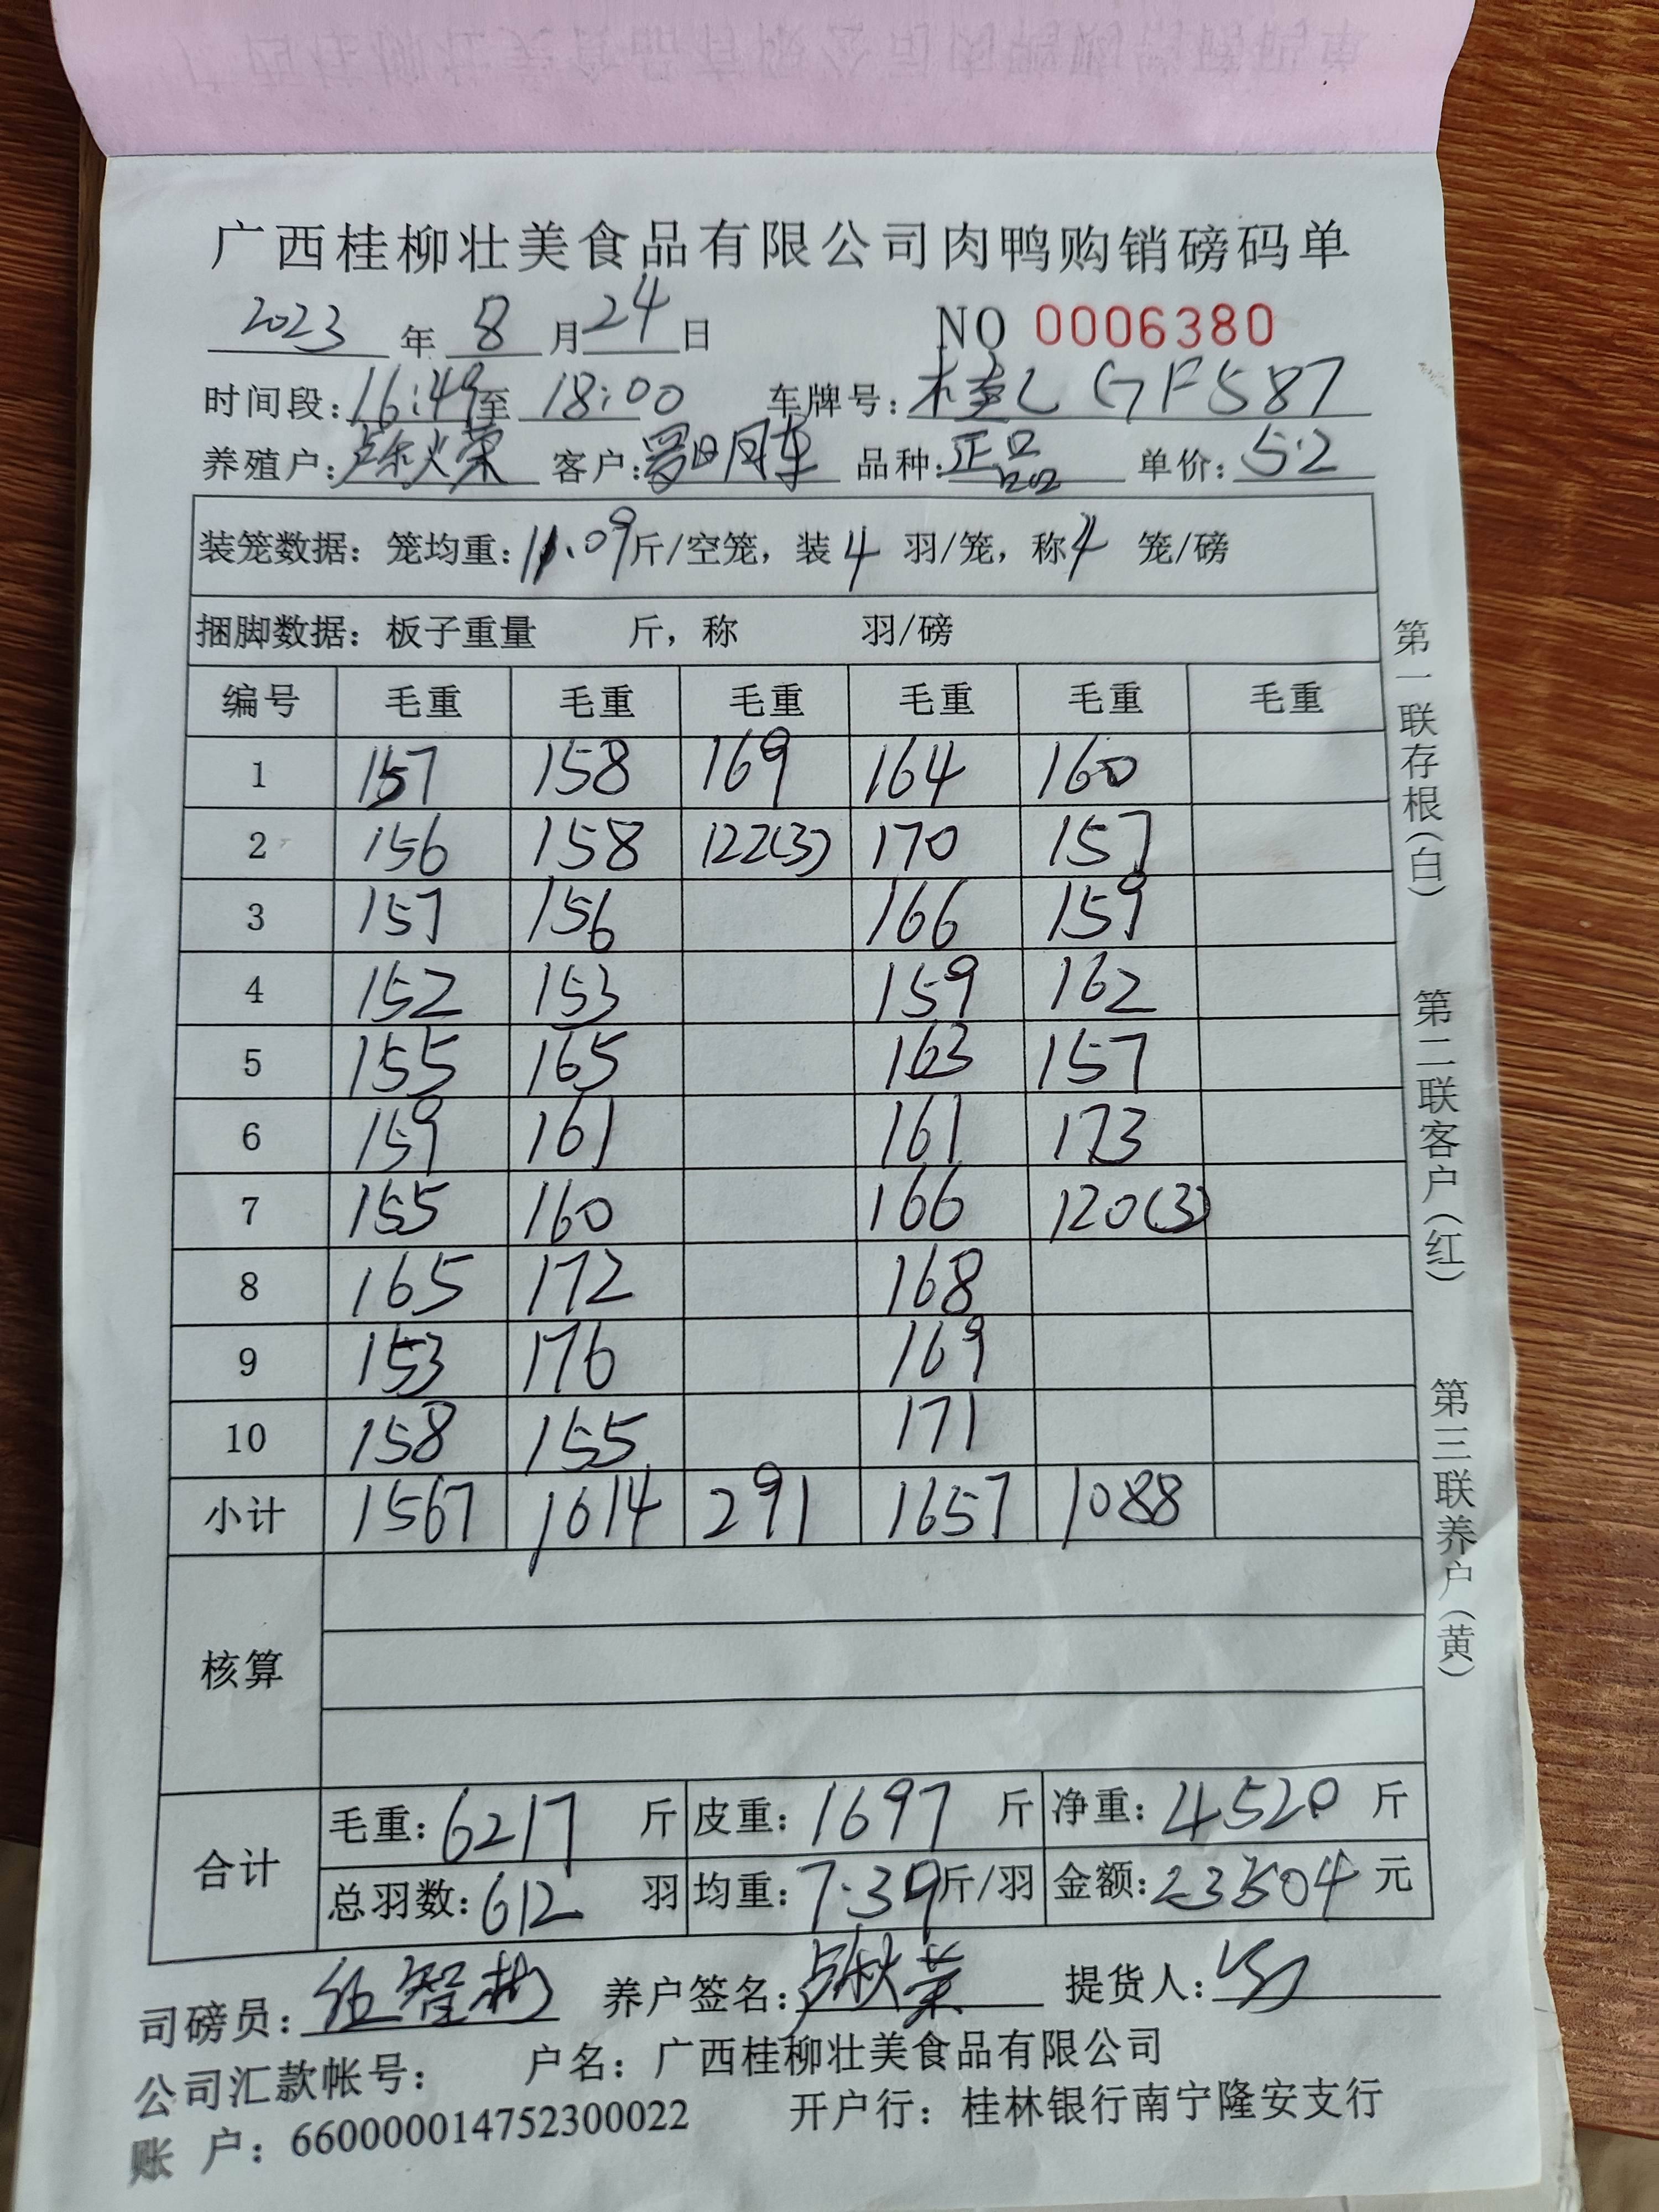 广西桂柳壮美食品有限公司肉鸭购销磅码单
2023 年 8 月 24 日 NO 0006380
时间段: 16:49 至 18:00 车牌号: 桂C GF587
养殖户: 卢秋荣 客户: 品种: 正品 单价: 5.2
装笼数据: 笼均重: 11.09 斤/空笼, 装 4 羽/笼, 称 4 笼/磅
捆脚数据: 板子重量 斤, 称 羽/磅
编号 毛重 毛重 毛重 毛重 毛重 毛重
1 157 158 169 164 160
2 156 158 122(3) 170 157
3 157 156 166 159
4 152 153 159 162
5 155 165 163 157
6 159 161 161 173
7 155 160 166 120(3)
8 165 172 168
9 153 176 169
10 158 155 171
小计 1567 1614 291 1657 1088
核算
合计 毛重: 6217 斤 皮重: 1697 斤 净重: 4520 斤
总羽数: 612 羽 均重: 7.39 斤/羽 金额: 23504 元
司磅员: 伍智彬 养户签名: 卢秋荣 提货人:
公司汇款帐号: 户名: 广西桂柳壮美食品有限公司
账 户: 660000014752300022 开户行: 桂林银行南宁隆安支行
第一联存根(白) 第二联客户(红) 第三联养户(黄)